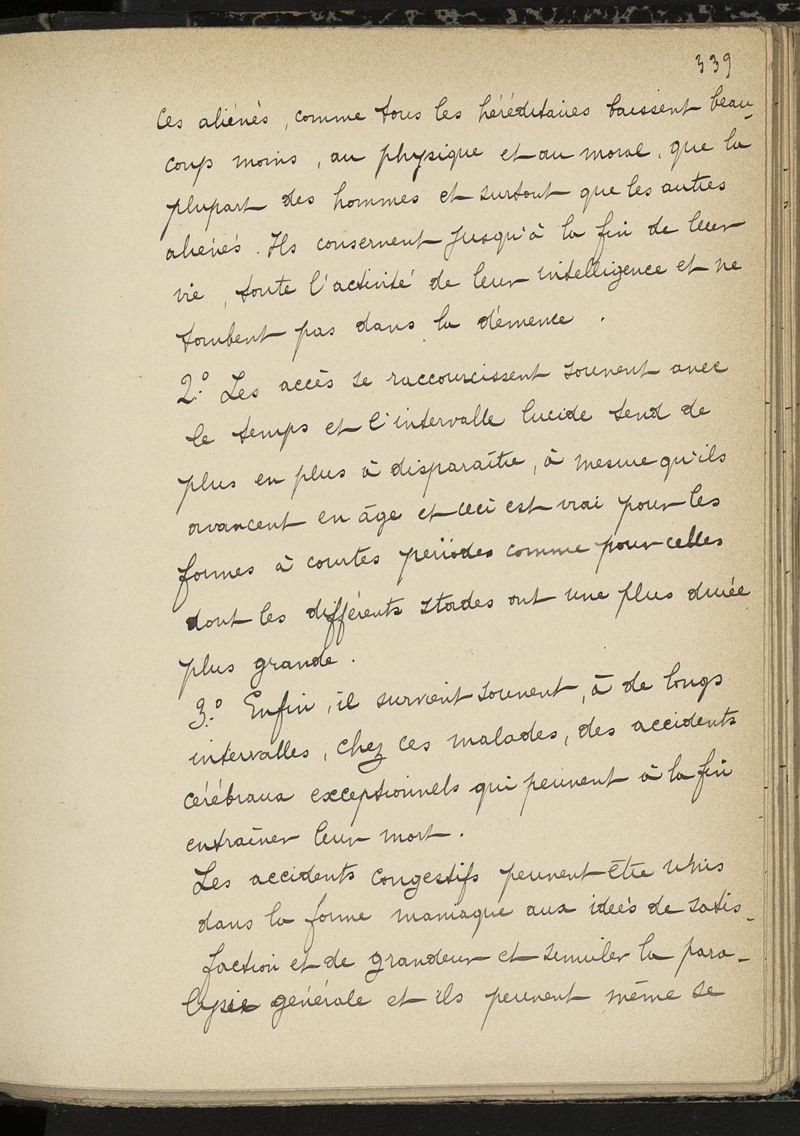 339
Ces aliénés, comme tous les héréditaires baissent beau-
coup moins, au physique et au moral, que la
plupart des hommes et surtout que les autres
aliénés. Ils conservent jusqu'à la fin de leur
vie, toute l'activité de leur intelligence et ne
tombent pas dans la démence.
2.º Les accès se raccourcissent souvent avec
le temps et l'intervalle lucide tend de
plus en plus à disparaître, à mesure qu'ils
avancent en âge et ceci est vrai pour les
formes à courtes périodes comme pour celles
dont les différents stades ont une plus durée
plus grande.
3.º Enfin, il survient souvent, à de longs
intervalles, chez ces malades, des accidents
cérébraux exceptionnels qui peuvent à la fin
entraîner leur mort.
Les accidents congestifs peuvent être unis
dans la forme maniaque aux idées de satis-
faction et de grandeur et simuler la para-
lysie générale et ils peuvent même se